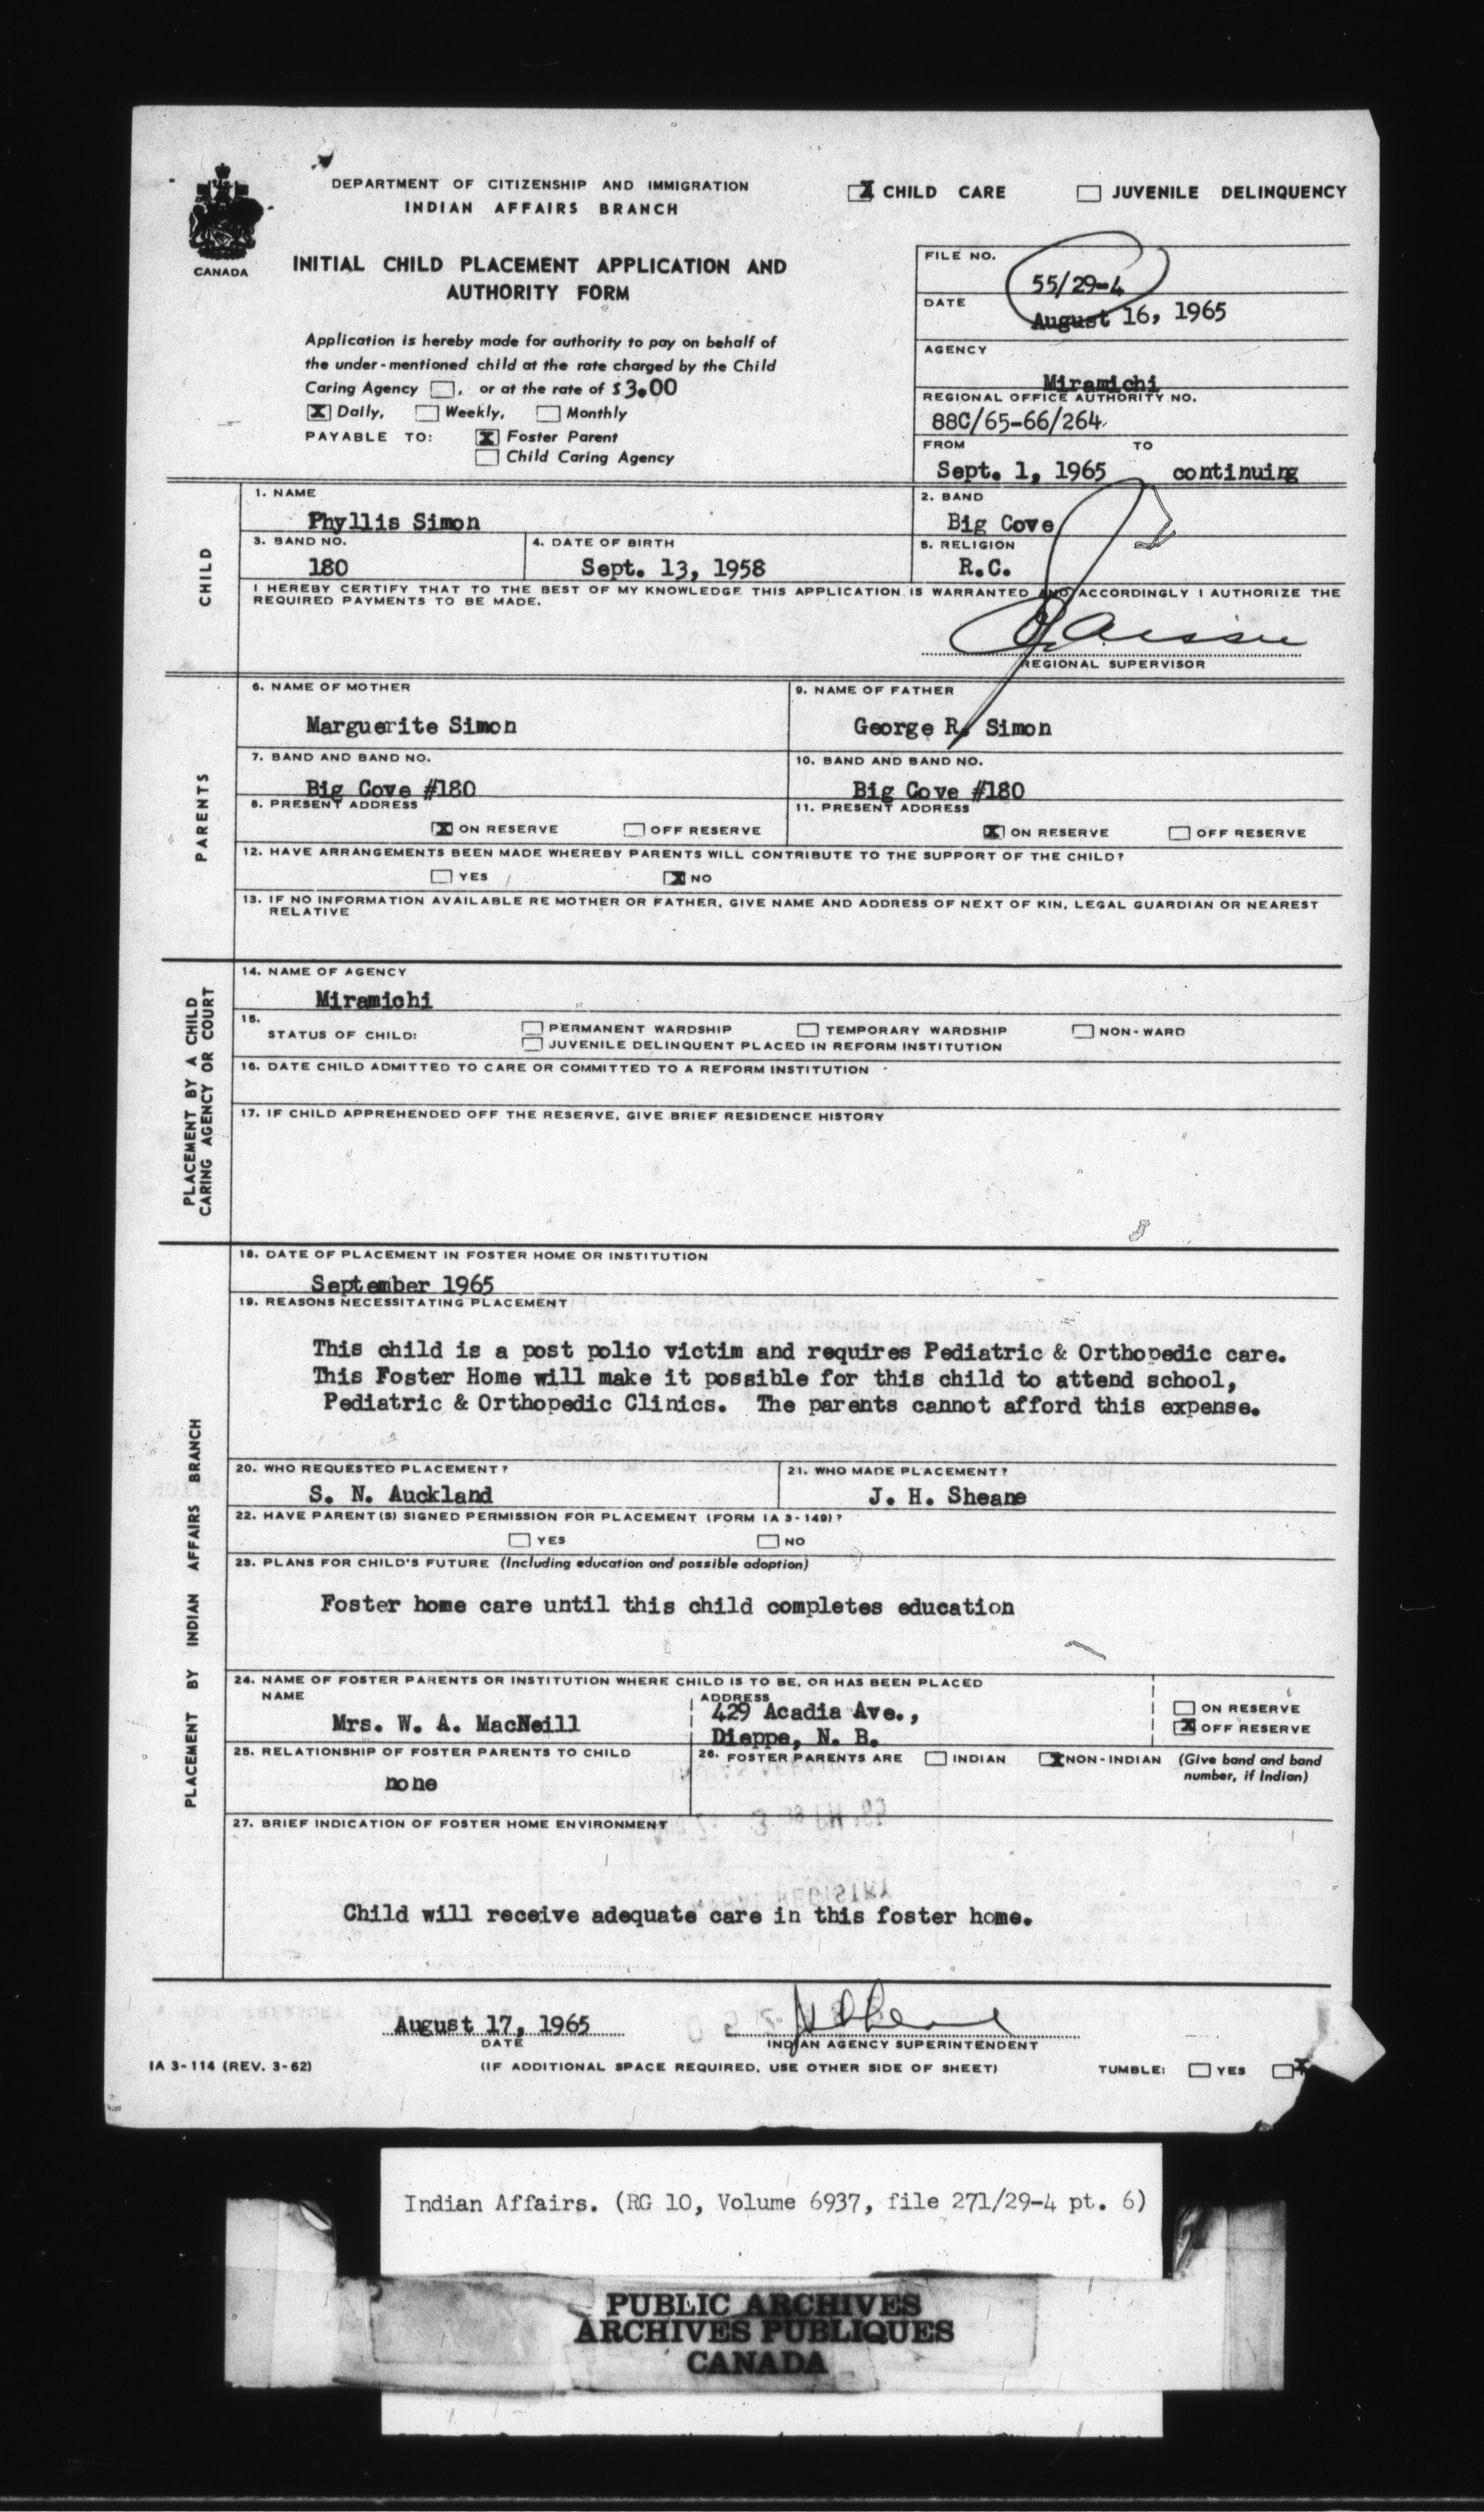 DEPARTMENT OF CITIZENSHIP AND IMMIGRATION
INDIAN AFFAIRS BRANCH
X CHILD CARE JUVENILE DELINQUENCY
CANADA
INITIAL CHILD PLACEMENT APPLICATION AND
AUTHORITY FORM
Application is hereby made for authority to pay on behalf of
the under-mentioned child at the rate charged by the Child
Caring Agency , or at the rate of $3.00
X Daily, Weekly, Monthly
PAYABLE TO: X Foster Parent
Child Caring Agency
FILE NO.
55/29-4
DATE
August 16, 1965
AGENCY
Miramichi
REGIONAL OFFICE AUTHORITY NO.
88C/65-66/264
FROM TO
Sept. 1, 1965 continuing
CHILD
1. NAME
Phyllis Simon
2. BAND
Big Cove
3. BAND NO.
180
4. DATE OF BIRTH
Sept. 13, 1958
5. RELIGION
R.C.
I HEREBY CERTIFY THAT TO THE BEST OF MY KNOWLEDGE THIS APPLICATION IS WARRANTED AND ACCORDINGLY I AUTHORIZE THE
REQUIRED PAYMENTS TO BE MADE.
REGIONAL SUPERVISOR
PARENTS
6. NAME OF MOTHER
Marguerite Simon
9. NAME OF FATHER
George R. Simon
7. BAND AND BAND NO.
Big Cove #180
10. BAND AND BAND NO.
Big Cove #180
8. PRESENT ADDRESS
X ON RESERVE OFF RESERVE
11. PRESENT ADDRESS
X ON RESERVE OFF RESERVE
12. HAVE ARRANGEMENTS BEEN MADE WHEREBY PARENTS WILL CONTRIBUTE TO THE SUPPORT OF THE CHILD?
YES X NO
13. IF NO INFORMATION AVAILABLE RE MOTHER OR FATHER, GIVE NAME AND ADDRESS OF NEXT OF KIN, LEGAL GUARDIAN OR NEAREST
RELATIVE
PLACEMENT BY A CHILD
CARING AGENCY OR COURT
14. NAME OF AGENCY
Miramichi
15.
STATUS OF CHILD: PERMANENT WARDSHIP TEMPORARY WARDSHIP NON-WARD
JUVENILE DELINQUENT PLACED IN REFORM INSTITUTION
16. DATE CHILD ADMITTED TO CARE OR COMMITTED TO A REFORM INSTITUTION
17. IF CHILD APPREHENDED OFF THE RESERVE, GIVE BRIEF RESIDENCE HISTORY
PLACEMENT BY INDIAN AFFAIRS BRANCH
18. DATE OF PLACEMENT IN FOSTER HOME OR INSTITUTION
September 1965
19. REASONS NECESSITATING PLACEMENT
This child is a post polio victim and requires Pediatric & Orthopedic care.
This Foster Home will make it possible for this child to attend school,
Pediatric & Orthopedic Clinics. The parents cannot afford this expense.
20. WHO REQUESTED PLACEMENT?
S. N. Auckland
21. WHO MADE PLACEMENT?
J. H. Sheane
22. HAVE PARENT(S) SIGNED PERMISSION FOR PLACEMENT (FORM IA 3-149)?
YES NO
23. PLANS FOR CHILD'S FUTURE (Including education and possible adoption)
Foster home care until this child completes education
24. NAME OF FOSTER PARENTS OR INSTITUTION WHERE CHILD IS TO BE, OR HAS BEEN PLACED
NAME
Mrs. W. A. MacNeill
ADDRESS
429 Acadia Ave.,
Dieppe, N. B.
ON RESERVE
X OFF RESERVE
25. RELATIONSHIP OF FOSTER PARENTS TO CHILD
none
26. FOSTER PARENTS ARE INDIAN X NON-INDIAN (Give band and band
number, if Indian)
27. BRIEF INDICATION OF FOSTER HOME ENVIRONMENT
Child will receive adequate care in this foster home.
August 17, 1965
DATE
INDIAN AGENCY SUPERINTENDENT
IA 3-114 (REV. 3-62)
(IF ADDITIONAL SPACE REQUIRED, USE OTHER SIDE OF SHEET)
TUMBLE: YES X
Indian Affairs. (RG 10, Volume 6937, file 271/29-4 pt. 6)
PUBLIC ARCHIVES
ARCHIVES PUBLIQUES
CANADA